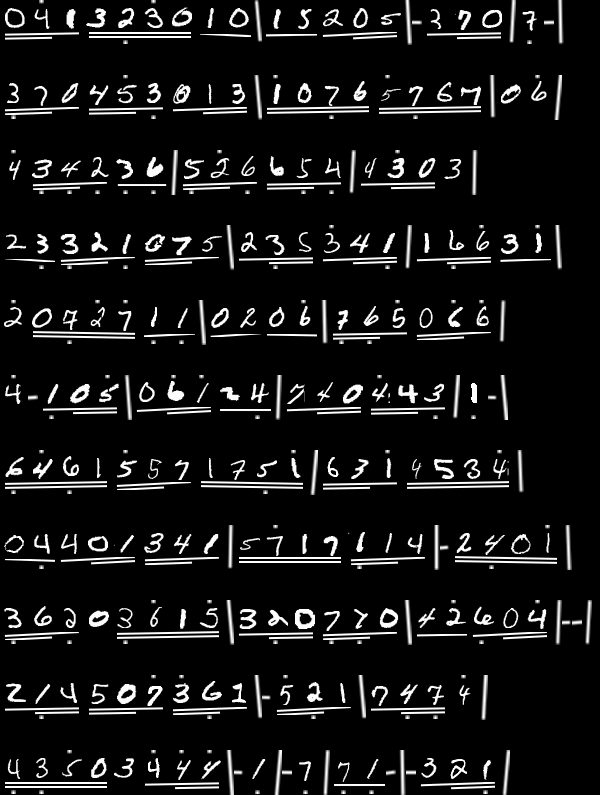 0 4 1 3 2 3 0 1 0 | 1 5 2 0 5 | - 3 7 0 | 7 - |
3 7 0 4 5 3 0 1 3 | 1 0 7 6 5 7 6 7 | 0 6 |
4 3 4 2 3 6 | 5 2 6 6 5 4 | 4 3 0 3 |
2 3 3 2 1 0 7 5 | 2 3 5 3 4 1 | 1 6 6 3 1 |
2 0 7 2 7 1 1 | 0 2 0 6 | 7 6 5 0 6 6 |
4 - 1 0 5 | 0 6 1 2 4 | 7 4 0 4 4 3 | 1 - |
6 4 6 1 5 5 7 1 7 5 1 | 6 3 1 4 5 3 4 |
0 4 4 0 1 3 4 1 | 5 7 1 7 1 1 4 | - 2 4 0 1 |
3 6 2 0 3 6 1 5 | 3 2 0 7 7 0 | 4 2 6 0 4 | - - |
2 1 4 5 0 7 3 6 1 | - 5 2 1 | 7 4 7 4 |
4 3 5 0 3 4 4 4 | - 1 | - 7 | 7 1 - | - 3 2 1 |